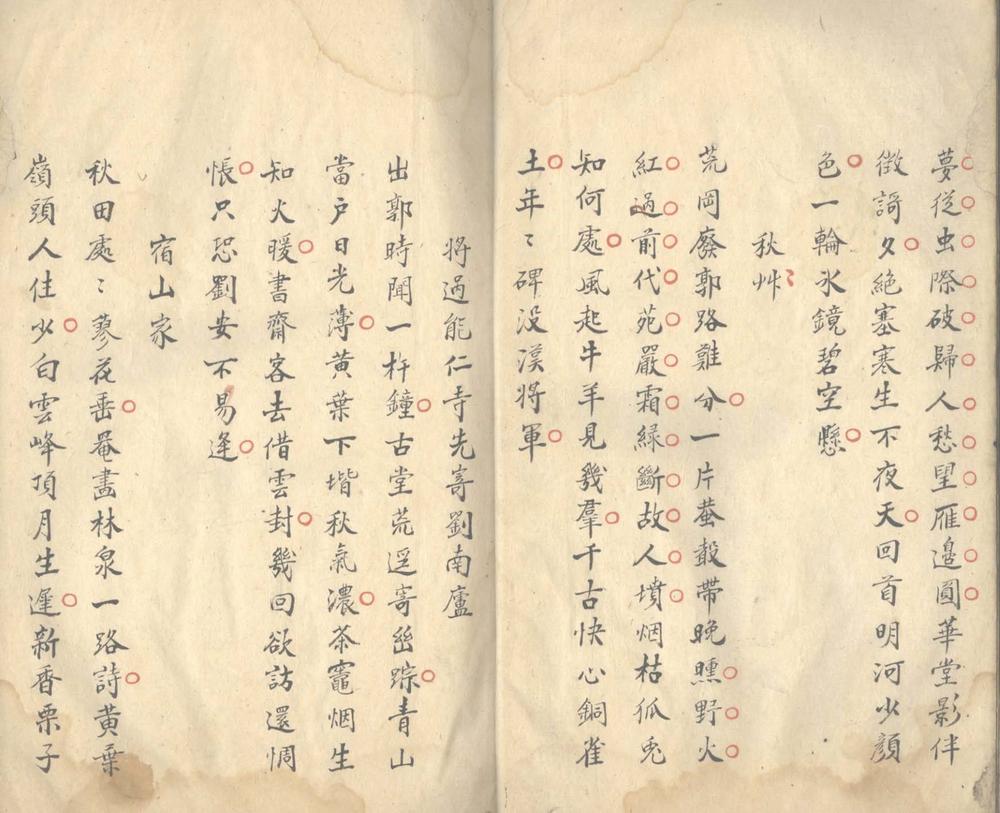 夢從虫際破歸人愁望雁邊圓華堂影伴
徴謌夕絶塞寒生不夜天回首明河少顔
色一輪氷鏡碧空懸
秋艸
荒岡廢郭路難分一片蛬聲帶晚曛野火
紅過前代苑嚴霜緑斷故人墳烟枯狐兎
知何處風起牛羊見幾羣千古快心銅雀
土年〻碑没漢將軍
將過能仁寺先寄劉南廬
出郭時聞一杵鐘古堂荒逕寄幽踪青山
當户日光薄黄葉下堦秋氣濃茶竈烟生
知火暖書齋客去借雲封幾回欲訪還惆
悵只恐劉安不易逢
宿山家
秋田處〻蓼花垂罨畫林泉一路詩黄葉
嶺頭人住少白雲峰頂月生遲新香栗子